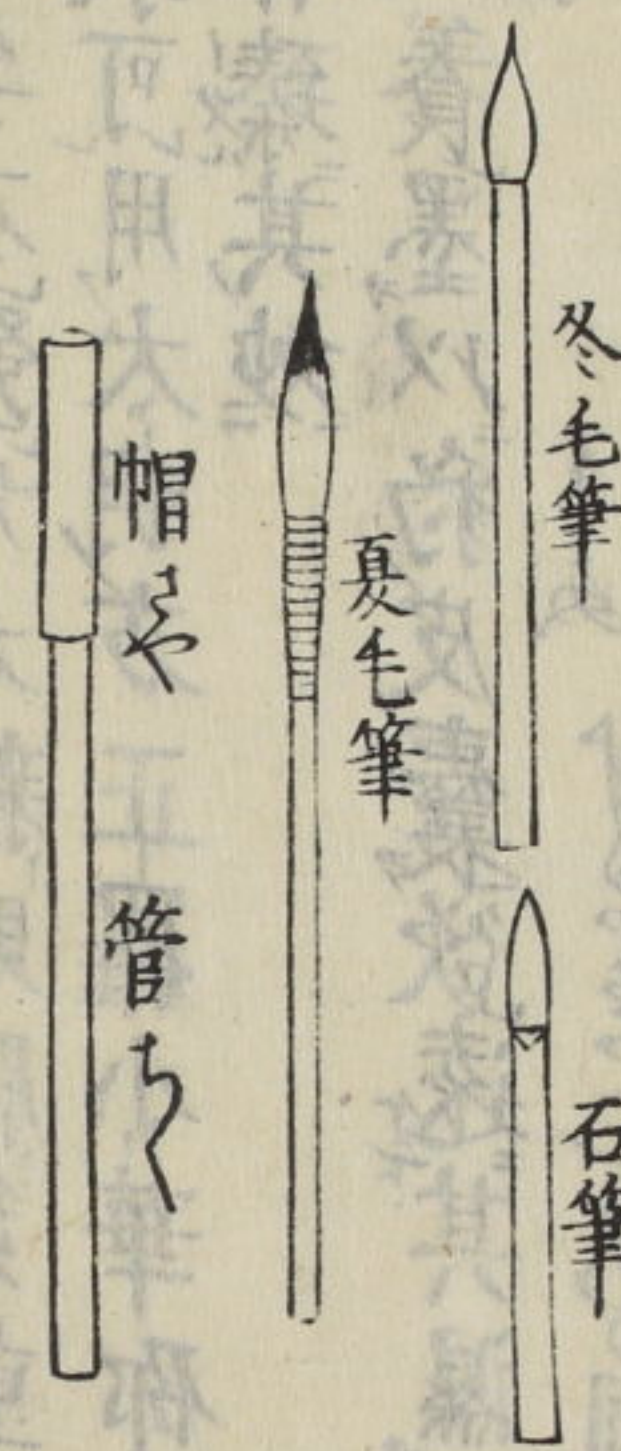 冬毛筆
石筆
夏毛筆
帽さや
管ちく